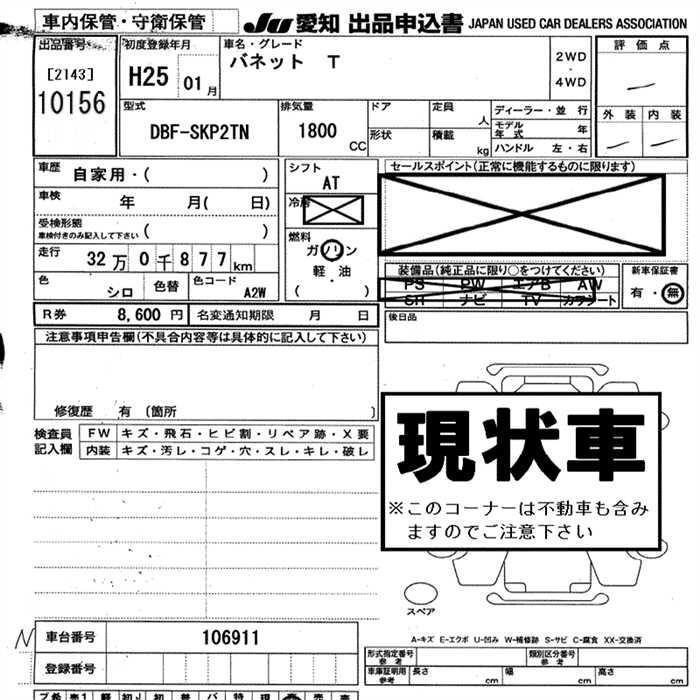 車内保管・守衛保管
JU 愛知 出品申込書 JAPAN USED CAR DEALERS ASSOCIATION
出品番号 [2143] 10156
初度登録年月 H25 01月
車名・グレード バネット T
2WD・4WD
評価点
外装 内装
型式 DBF-SKP2TN
排気量 1800 CC
ドア 形状
定員 人
積載 kg
ディーラー・並行
モデル年式 年
ハンドル 左・右
車歴 自家用・( )
車検 年 月( 日)
受検形態 車検付きのみ記入して下さい ( )
走行 32万0千877km
色 シロ 色替 色コード A2W
シフト AT
冷房
燃料 ガソリン
軽・油
( ・ )
セールスポイント(正常に機能するものに限ります)
装備品(純正品に限り○をつけてください)
PS PW エアB AW
SR ナビ TV カワシート
新車保証書 有・無
R券 8,600円 名変通知期限 月 日
後日品
注意事項申告欄(不具合内容等は具体的に記入して下さい)
修復歴 有 〔箇所 〕
検査員記入欄
FW キズ・飛石・ヒビ割・リペア跡・X要
内装 キズ・汚レ・コゲ・穴・スレ・キレ・破レ
現状車
※このコーナーは不動車も含み
ますのでご注意下さい
スペア
A-キズ E-エクボ U-凹み W-補修跡 S-サビ C-腐食 XX-交換済
車台番号 106911
登録番号
形式指定番号 参考
類別区分番号 参考
車庫証明用 参考 長さ cm 幅 cm 高さ cm